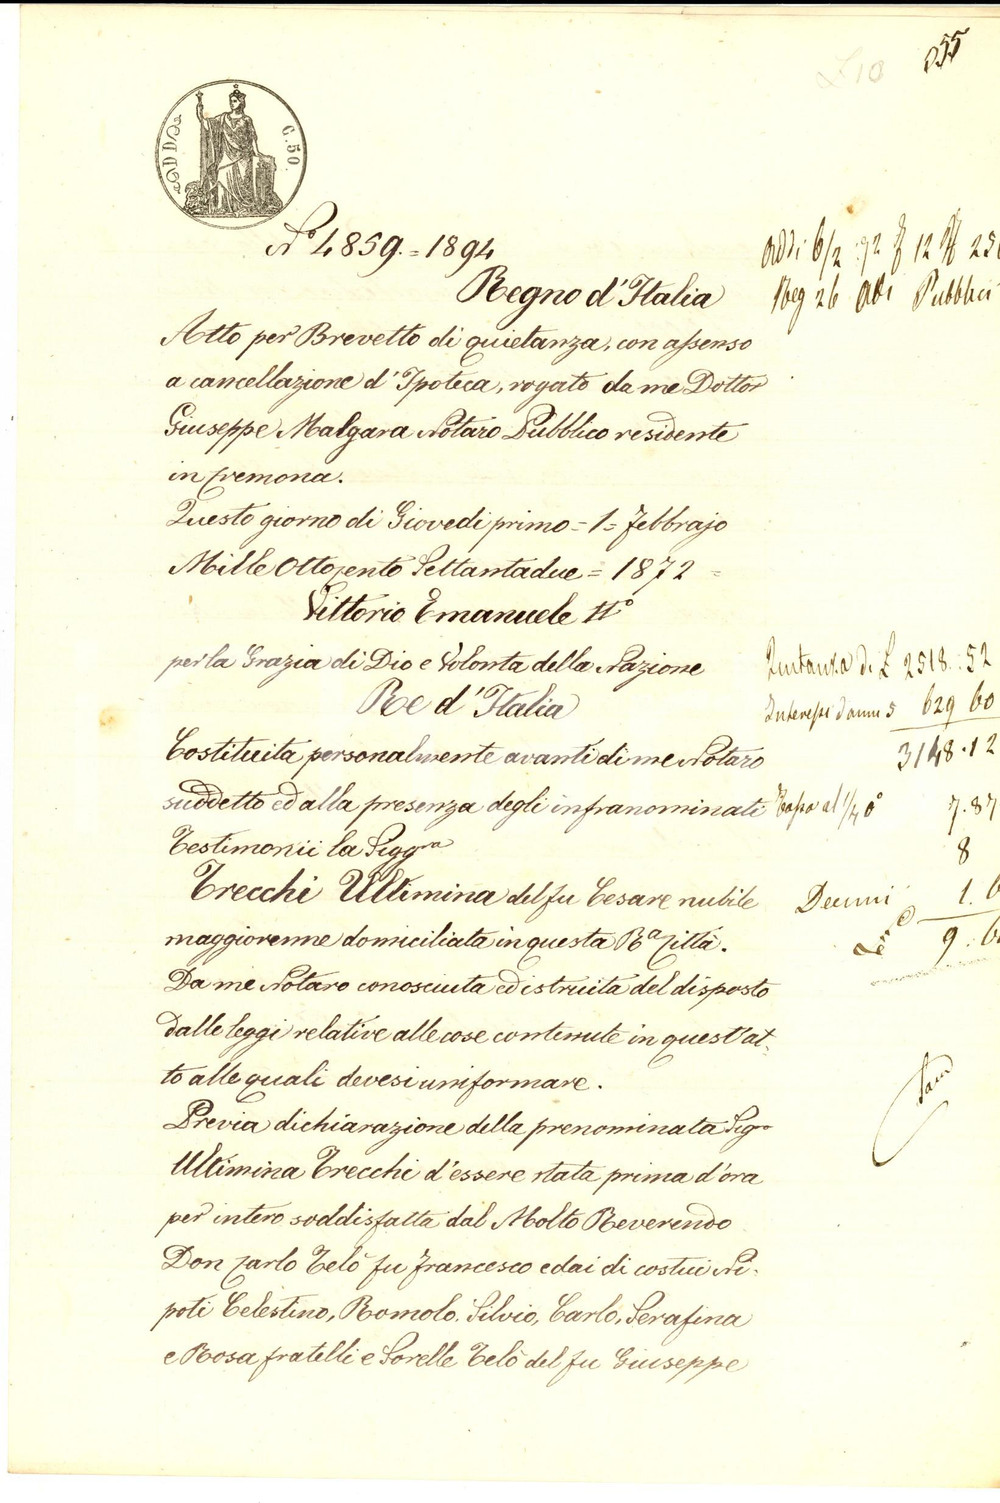 £10
255
C. 50.
N.° 4859.=1894
Regno d'Italia
Atto per Brevetto di quietanza, con assenso
a cancellazione d'Ipoteca, rogato da me Dottor
Giuseppe Malgara Notaro Pubblico residente
in Cremona.
Questo giorno di Giovedi primo = 1 = Febbrajo
Mille Ottocento Settantadue = 1872 =
Vittorio Emanuele II°
per la Grazia di Dio e Volontà della Nazione
Re d'Italia
Costituita personalmente avanti di me Notaro
suddetto ed alla presenza degli infranominati
Testimonii la Sigg.ra
Trecchi Ultimina del fu Cesare nubile
maggiorenne domiciliata in questa R.a Città.
Da me Notaro conosciuta ed istruita del disposto
dalle leggi relative alle cose contenute in quest'at-
to alle quali devesi uniformare.
Previa dichiarazione della prenominata Sig.a
Ultimina Trecchi d'essere stata prima d'ora
per intero soddisfatta dal Molto Reverendo
Don Carlo Telò fu Francesco e dai di costui Ni-
poti Celestino, Romolo, Silvio, Carlo, Serafina
e Rosa fratelli e Sorelle Telò del fu Giuseppe
Addi 6/2 72 f 12 N 25
Reg 26 Atti Pubblici
Quitanza di £ 2518.52
Interessi d'anni 5 629 60
3148.12
Tassa al 1/4 % 7.87
8
Decimi 1.6
9.6